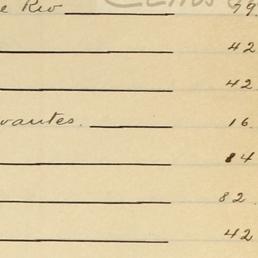 e Rio 79.
42
42
vantes. 16
84
82.
42